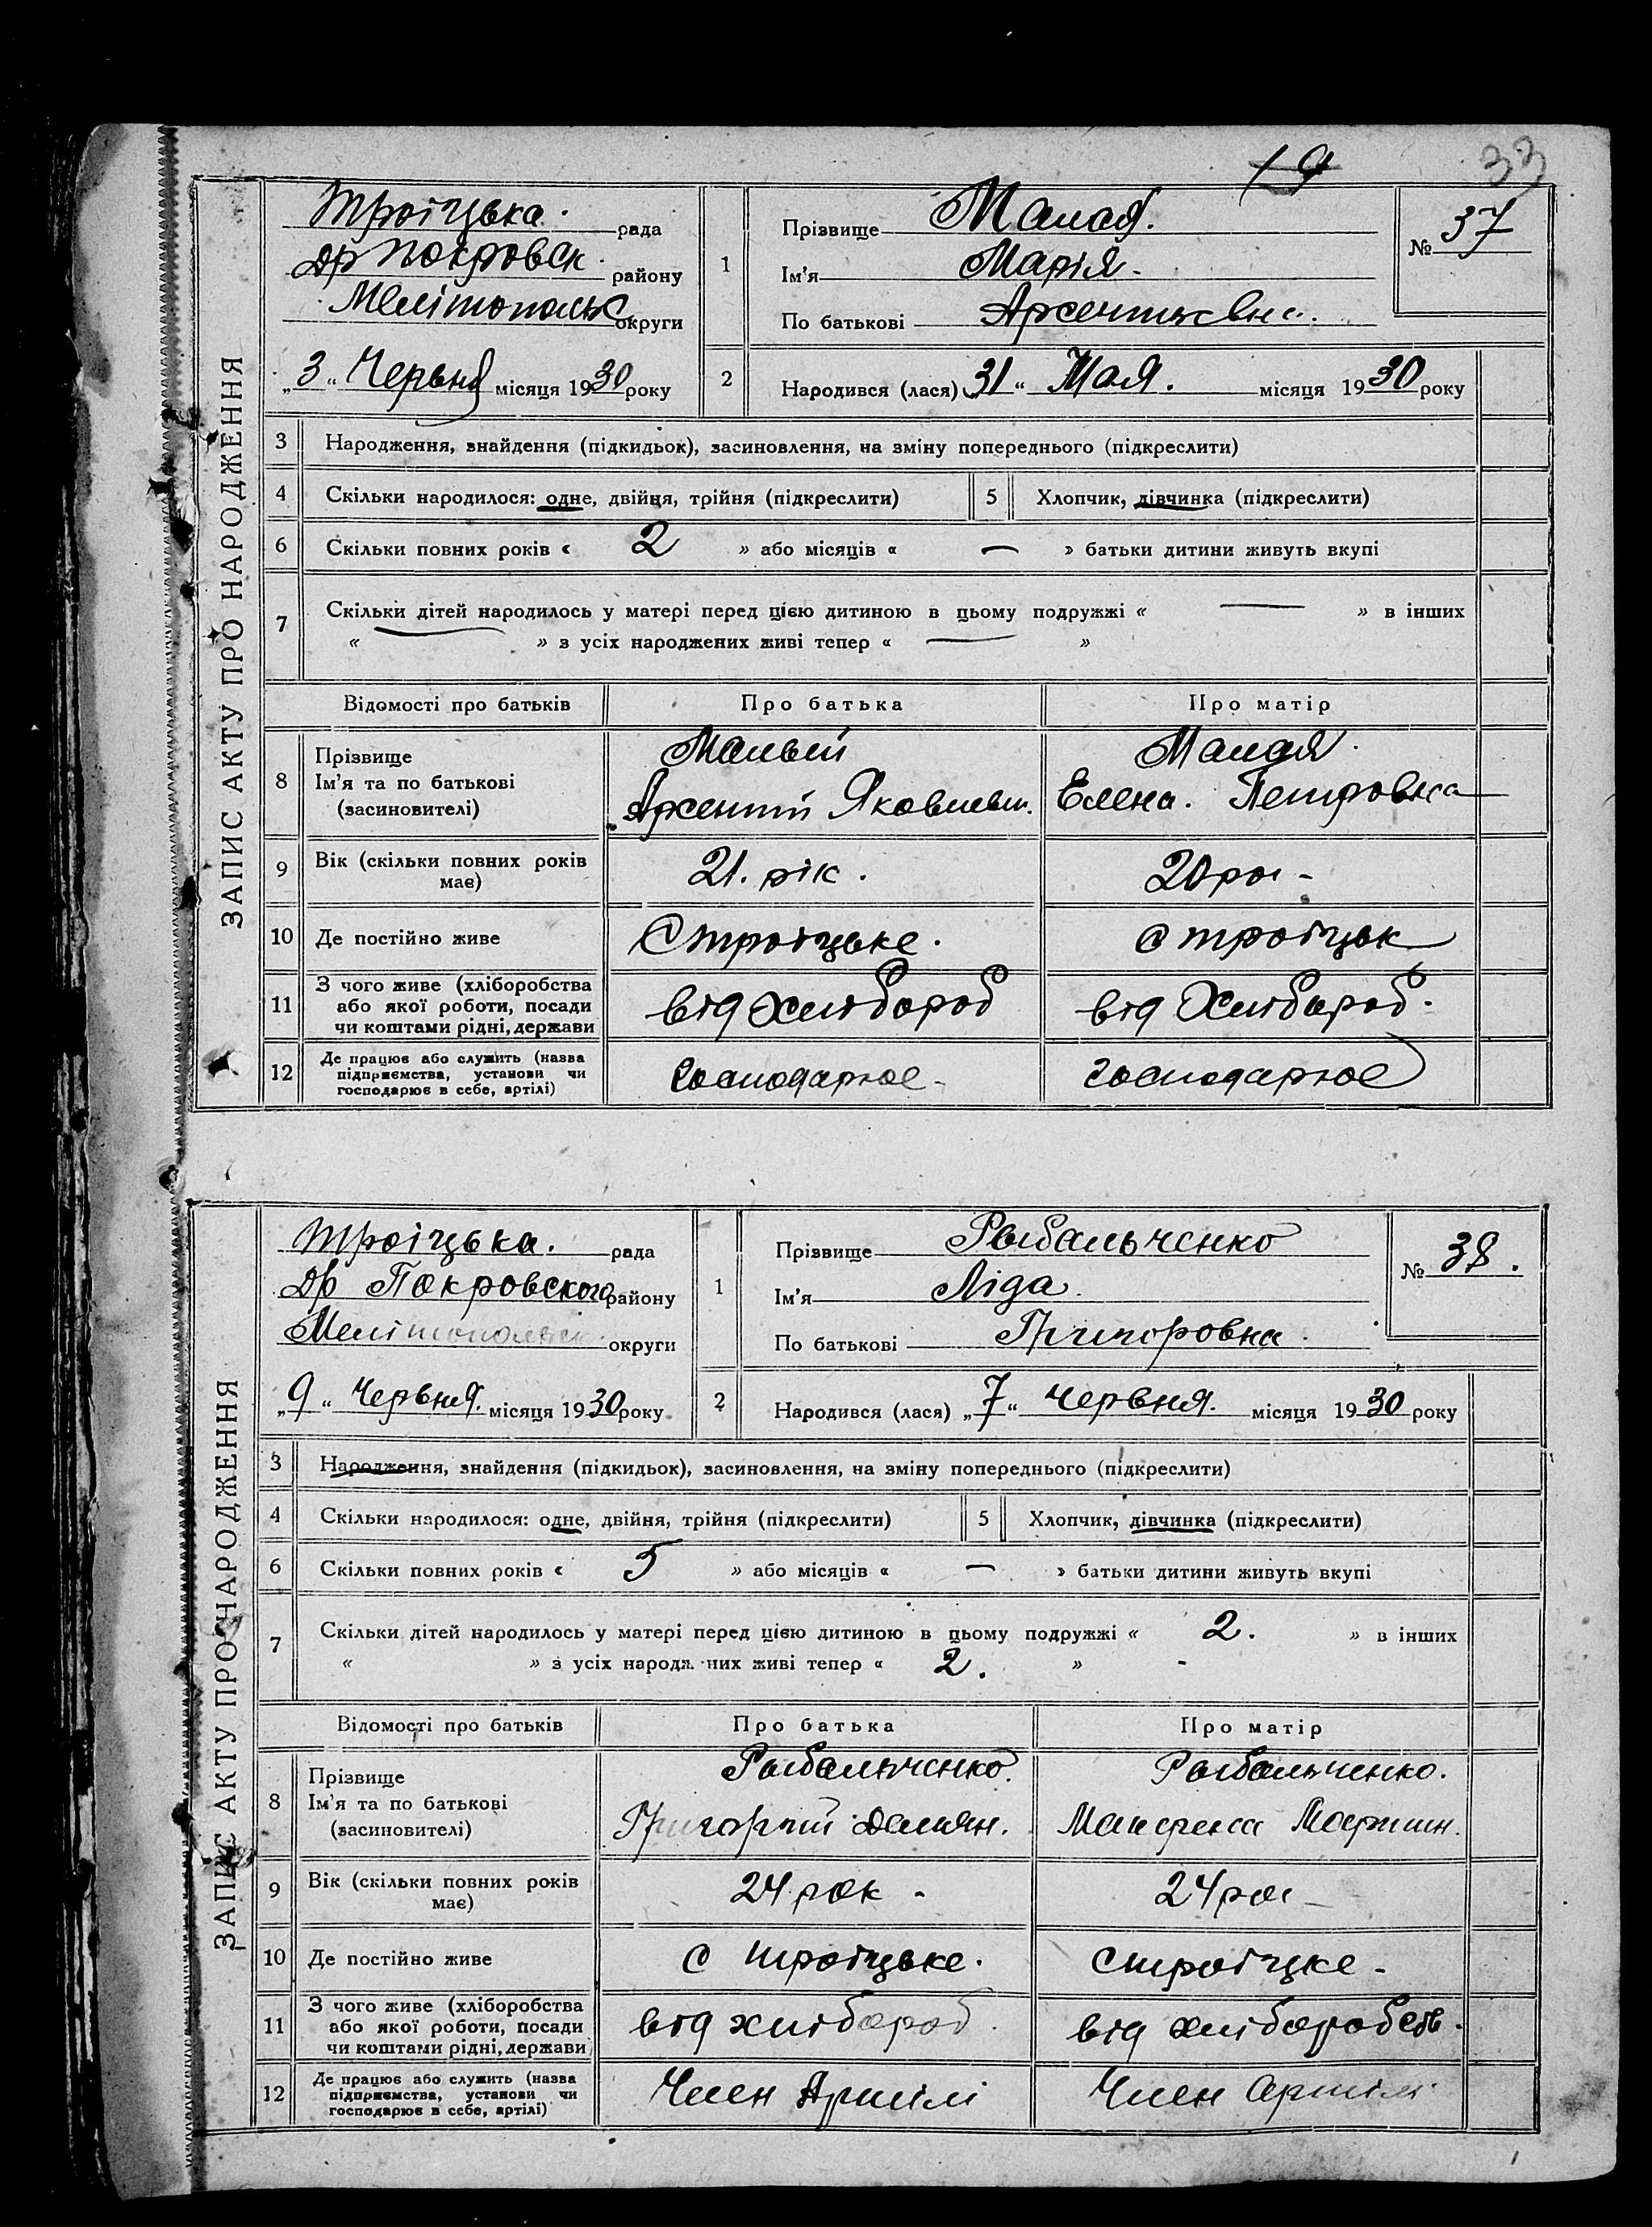 19
33
ЗАПИС АКТУ ПРО НАРОДЖЕННЯ
Троіцька. рада
Др Покровск. району
Мелітопольс округи
„3“ Червня місяця 1930 року
1
Прізвище Малая.
Ім'я Марія.
По батькові Арсентьевна.
№ 37
2
Народився (лася) „31“ Мая. місяця 1930 року
3 Народження, знайдення (підкидьок), засиновлення, на зміну попереднього (підкреслити)
4 Скільки народилося: одне, двійня, трійня (підкреслити) 5 Хлопчик, дівчинка (підкреслити)
6 Скільки повних років « 2 » або місяців « — » батьки дитини живуть вкупі
7 Скільки дітей народилось у матері перед цією дитиною в цьому подружжі « — » в інших
« — » з усіх народжених живі тепер « — »
Відомості про батьків Про батька Про матір
8 Прізвище
Ім'я та по батькові
(засиновителі)
Малый
Арсентий Яковлевич.
Малая.
Елена. Петровна
9 Вік (скільки повних років
має)
21. рік.
20 рок -
10 Де постійно живе С Троіцьке. С Троіцьк
11 З чого живе (хліборобства
або якої роботи, посади
чи коштами рідні, держави
від Хлібороб
від Хлібороб.
12 Де працює або служить (назва
підприємства, установи чи
господарює в себе, артілі)
Господарює -
Господарює
ЗАПИС АКТУ ПРО НАРОДЖЕННЯ
Троіцька. рада
Др Покровского району
Мелітопольск округи
„9“ Червня. місяця 1930 року
1
Прізвище Рыбальченко
Ім'я Ліда.
По батькові Григоровна.
№ 38.
2
Народився (лася) „7“ червня. місяця 1930 року
3 Народження, знайдення (підкидьок), засиновлення, на зміну попереднього (підкреслити)
4 Скільки народилося: одне, двійня, трійня (підкреслити) 5 Хлопчик, дівчинка (підкреслити)
6 Скільки повних років « 5 » або місяців « — » батьки дитини живуть вкупі
7 Скільки дітей народилось у матері перед цією дитиною в цьому подружжі « 2. » в інших
« » з усіх народж них живі тепер « 2. » -
Відомості про батьків Про батька Про матір
8 Прізвище
Ім'я та по батькові
(засиновителі)
Рыбальченко.
Григорий Демян.
Рыбальченко.
9 Вік (скільки повних років
має)
24 рок -
24 рок -
10 Де постійно живе С Троіцьке. С Троіцке -
11 З чого живе (хліборобства
або якої роботи, посади
чи коштами рідні, держави
від хлібороб.
від хліборобств.
12 Де працює або служить (назва
підприємства, установи чи
господарює в себе, артілі)
Член Артілі
Член Артілі